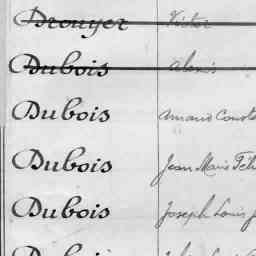 Drouyer Victor
Dubois Alexis
Dubois Amand
Dubois Jean Marie
Dubois Joseph Louis
Dubois